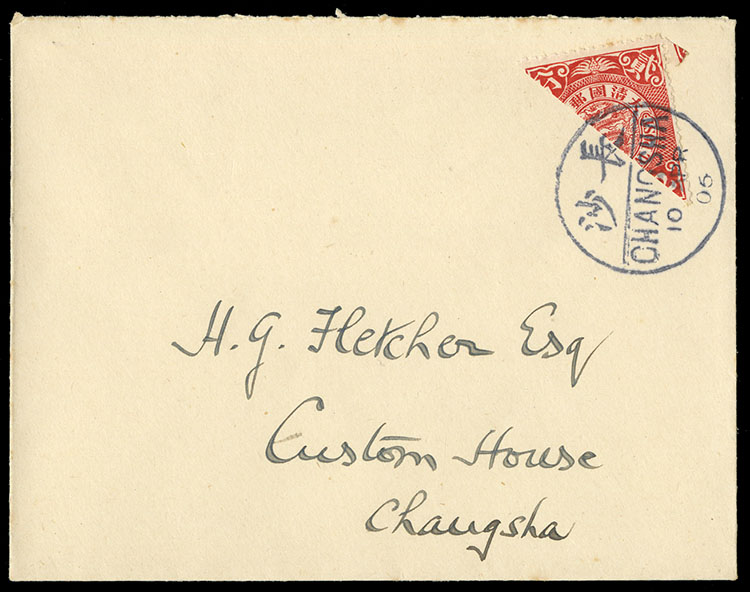 分 貳
郵國清大
長沙
CHANGSHA
10 APR 05
H. G. Fletcher Esq
Custom House
Changsha